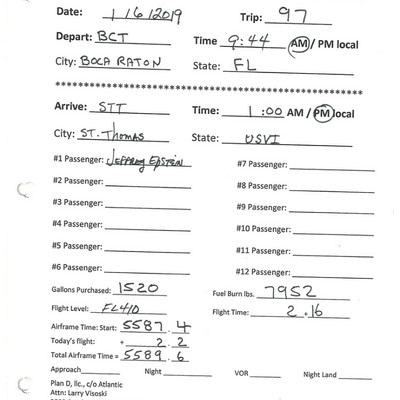 Date: 1/6/2019 Trip: 97
Depart: BCT Time 9:44 AM / PM local
City: BOCA RATON State: FL
****************************************************
Arrive: STT Time: 1:00 AM / PM local
City: ST. Thomas State: USVI
#1 Passenger: Jeffrey Epstein #7 Passenger:
#2 Passenger: #8 Passenger:
#3 Passenger: #9 Passenger:
#4 Passenger: #10 Passenger:
#5 Passenger: #11 Passenger:
#6 Passenger: #12 Passenger:
Gallons Purchased: 1520 Fuel Burn lbs. 7952
Flight Level: FL410 Flight Time: 2.16
Airframe Time: Start: 5587.4
Today's flight: + 2.2
Total Airframe Time = 5589.6
Approach Night VOR Night Land
Plan D, llc., c/o Atlantic
Attn: Larry Visoski